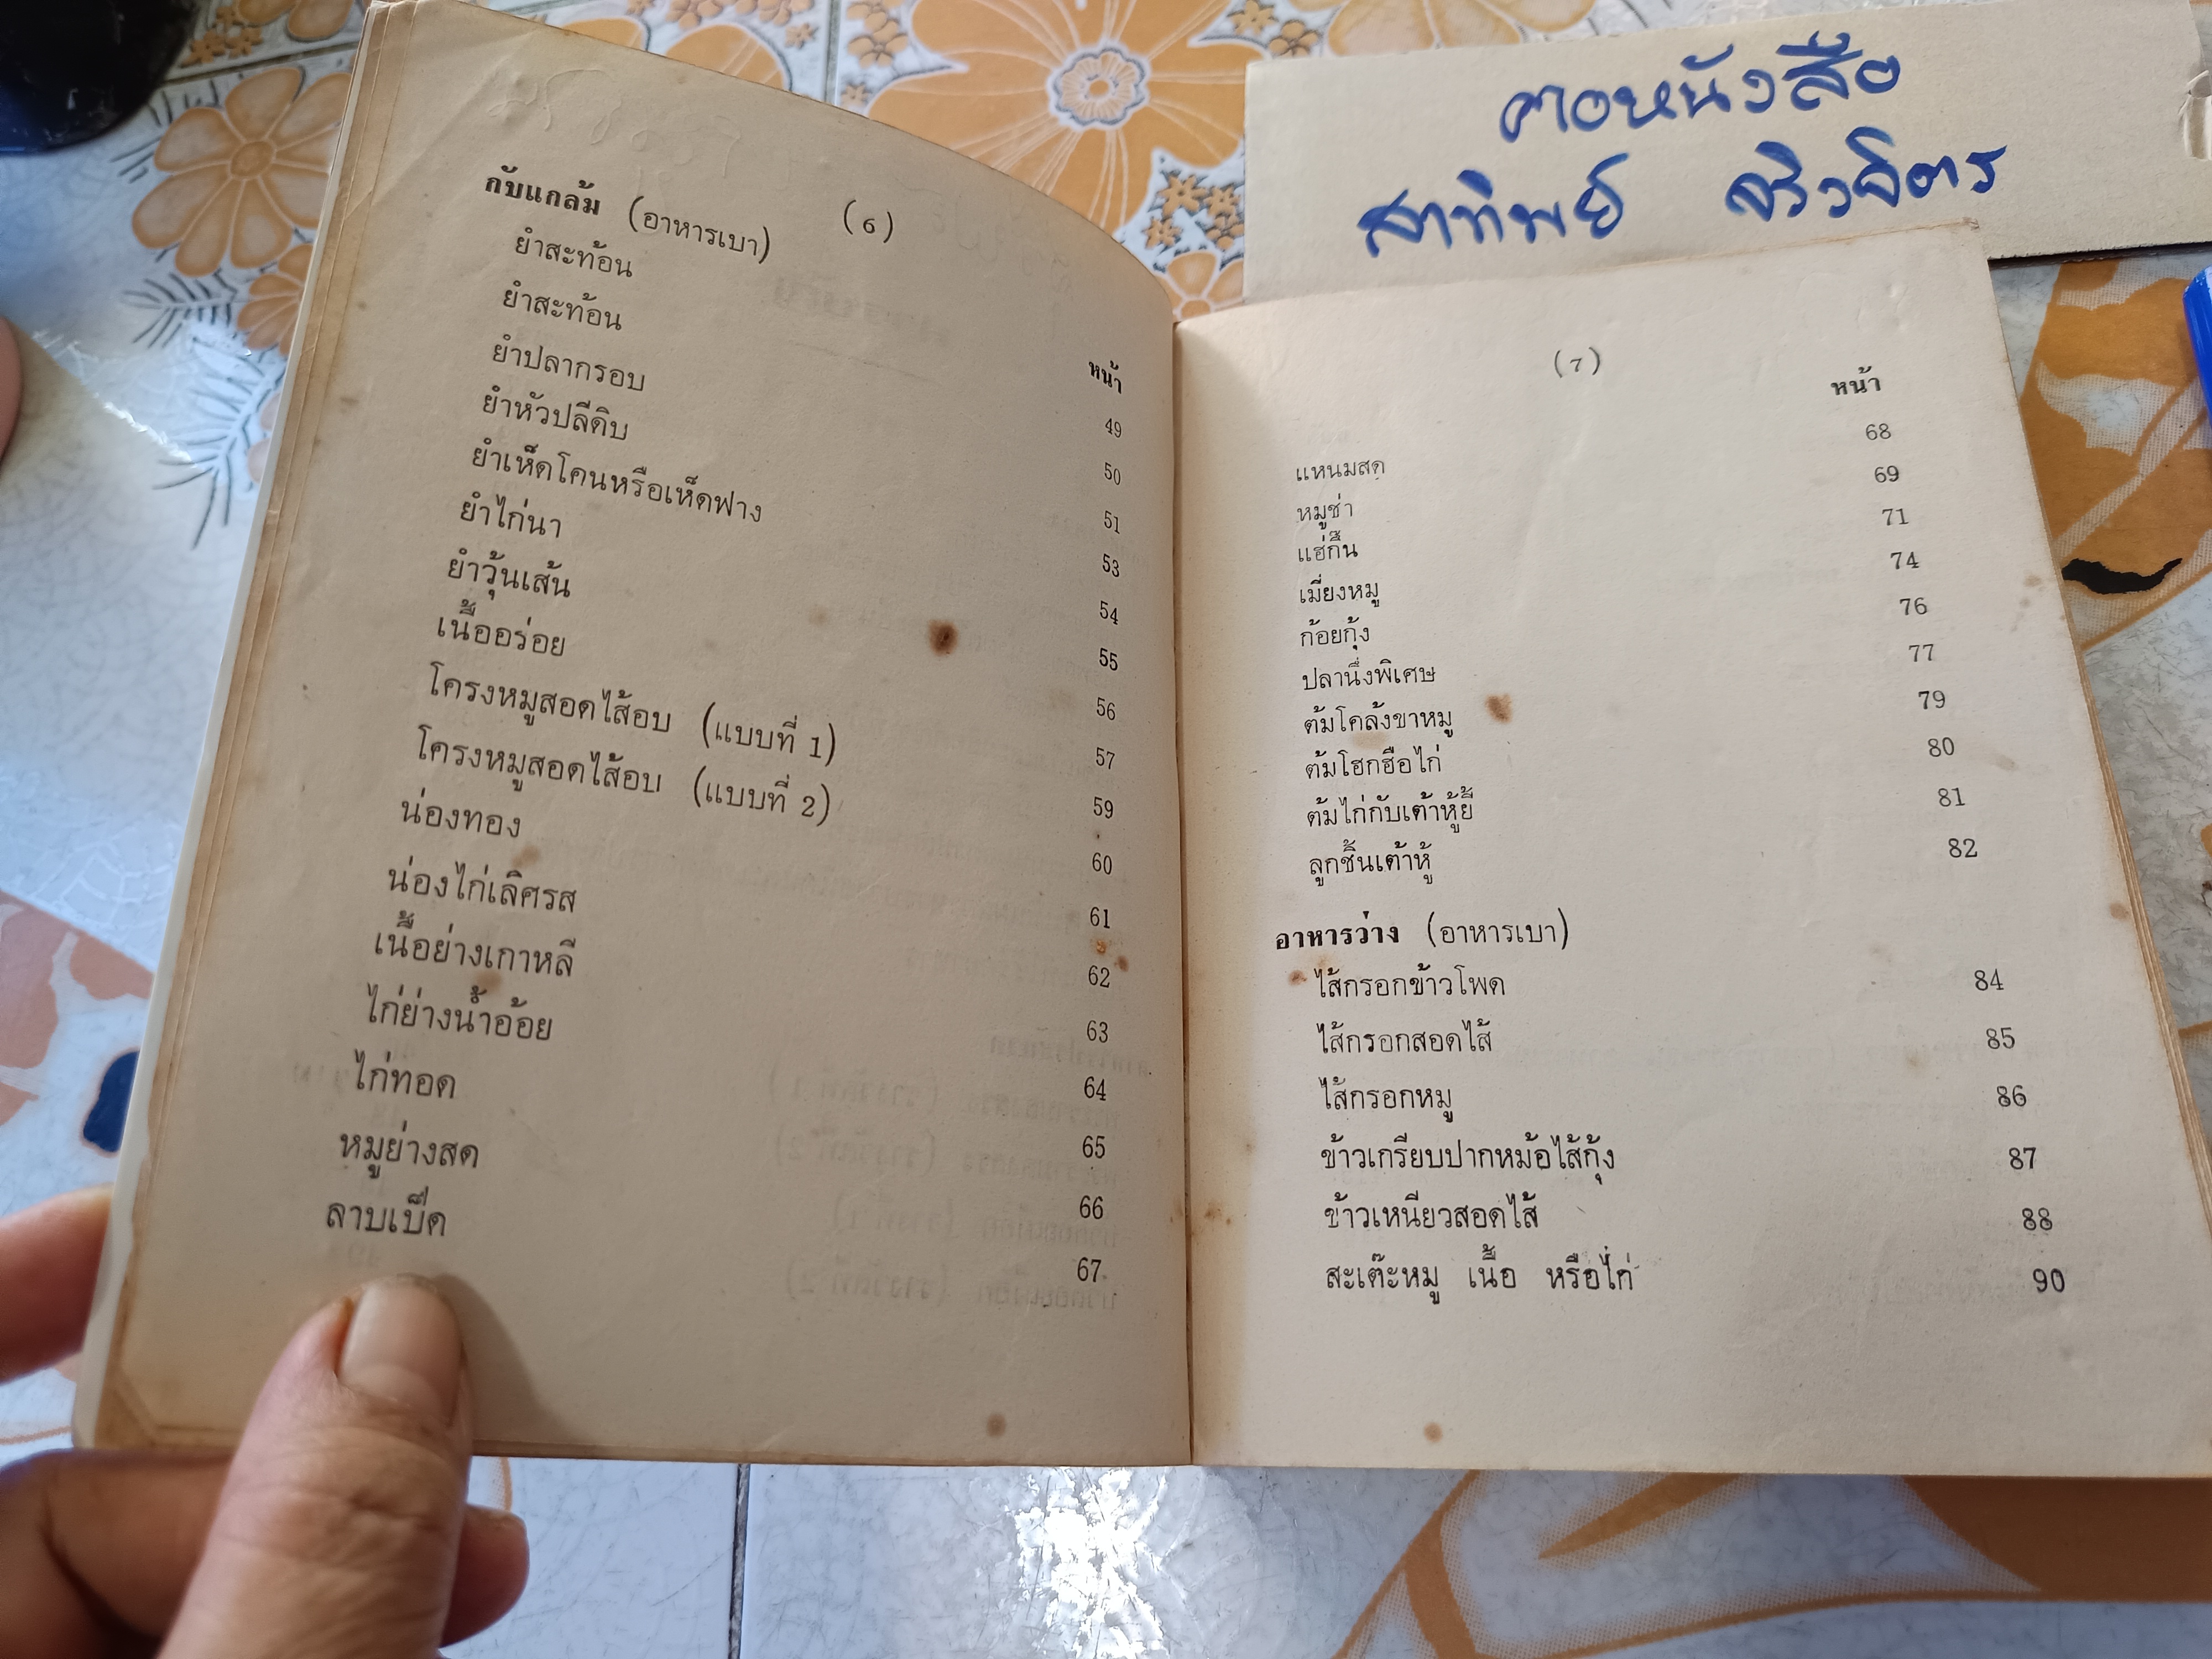 (6)
กับแกล้ม (อาหารเบา) หน้า
ยำสะท้อน 49
ยำสะท้อน 50
ยำปลากรอบ 51
ยำหัวปลีดิบ 53
ยำเห็ดโคนหรือเห็ดฟาง 54
ยำไก่นา 55
ยำวุ้นเส้น 56
เนื้ออร่อย 57
โครงหมูสอดไส้อบ (แบบที่ 1) 59
โครงหมูสอดไส้อบ (แบบที่ 2) 60
น่องทอง 61
น่องไก่เลิศรส 62
เนื้อย่างเกาหลี 63
ไก่ย่างน้ำอ้อย 64
ไก่ทอด 65
หมูย่างสด 66
ลาบเป็ด 67
คอหนังสือ
สาทิพย์
(7)
หน้า
แหนมสด 68
หมูซ่า 69
แฮ่กึ๊น 71
เมี่ยงหมู 74
ก้อยกุ้ง 76
ปลานึ่งพิเศษ 77
ต้มโคล้งขาหมู 79
ต้มโฮกฮือไก่ 80
ต้มไก่กับเต้าหู้ยี้ 81
ลูกชิ้นเต้าหู้ 82
อาหารว่าง (อาหารเบา)
ไส้กรอกข้าวโพด 84
ไส้กรอกสอดไส้ 85
ไส้กรอกหมู 86
ข้าวเกรียบปากหม้อไส้กุ้ง 87
ข้าวเหนียวสอดไส้ 88
สะเต๊ะหมู เนื้อ หรือไก่ 90